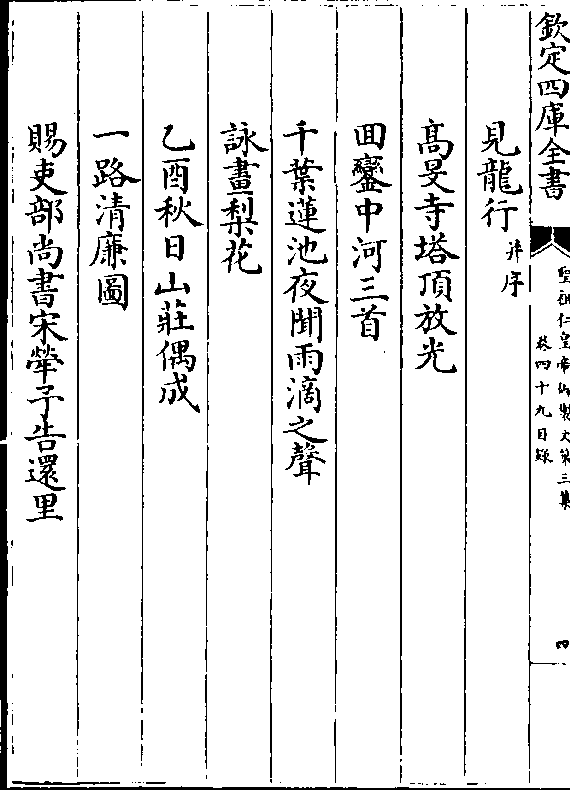 欽定四庫全書
聖祖仁皇帝御製文第三集
卷四十九目錄
四
見龍行并序
髙旻寺塔頂放光
回鑾中河三首
千葉蓮池夜聞雨滴之聲
詠畫梨花
乙酉秋日山莊偶成
一路清廉圖
賜吏部尚書宋犖予告還里